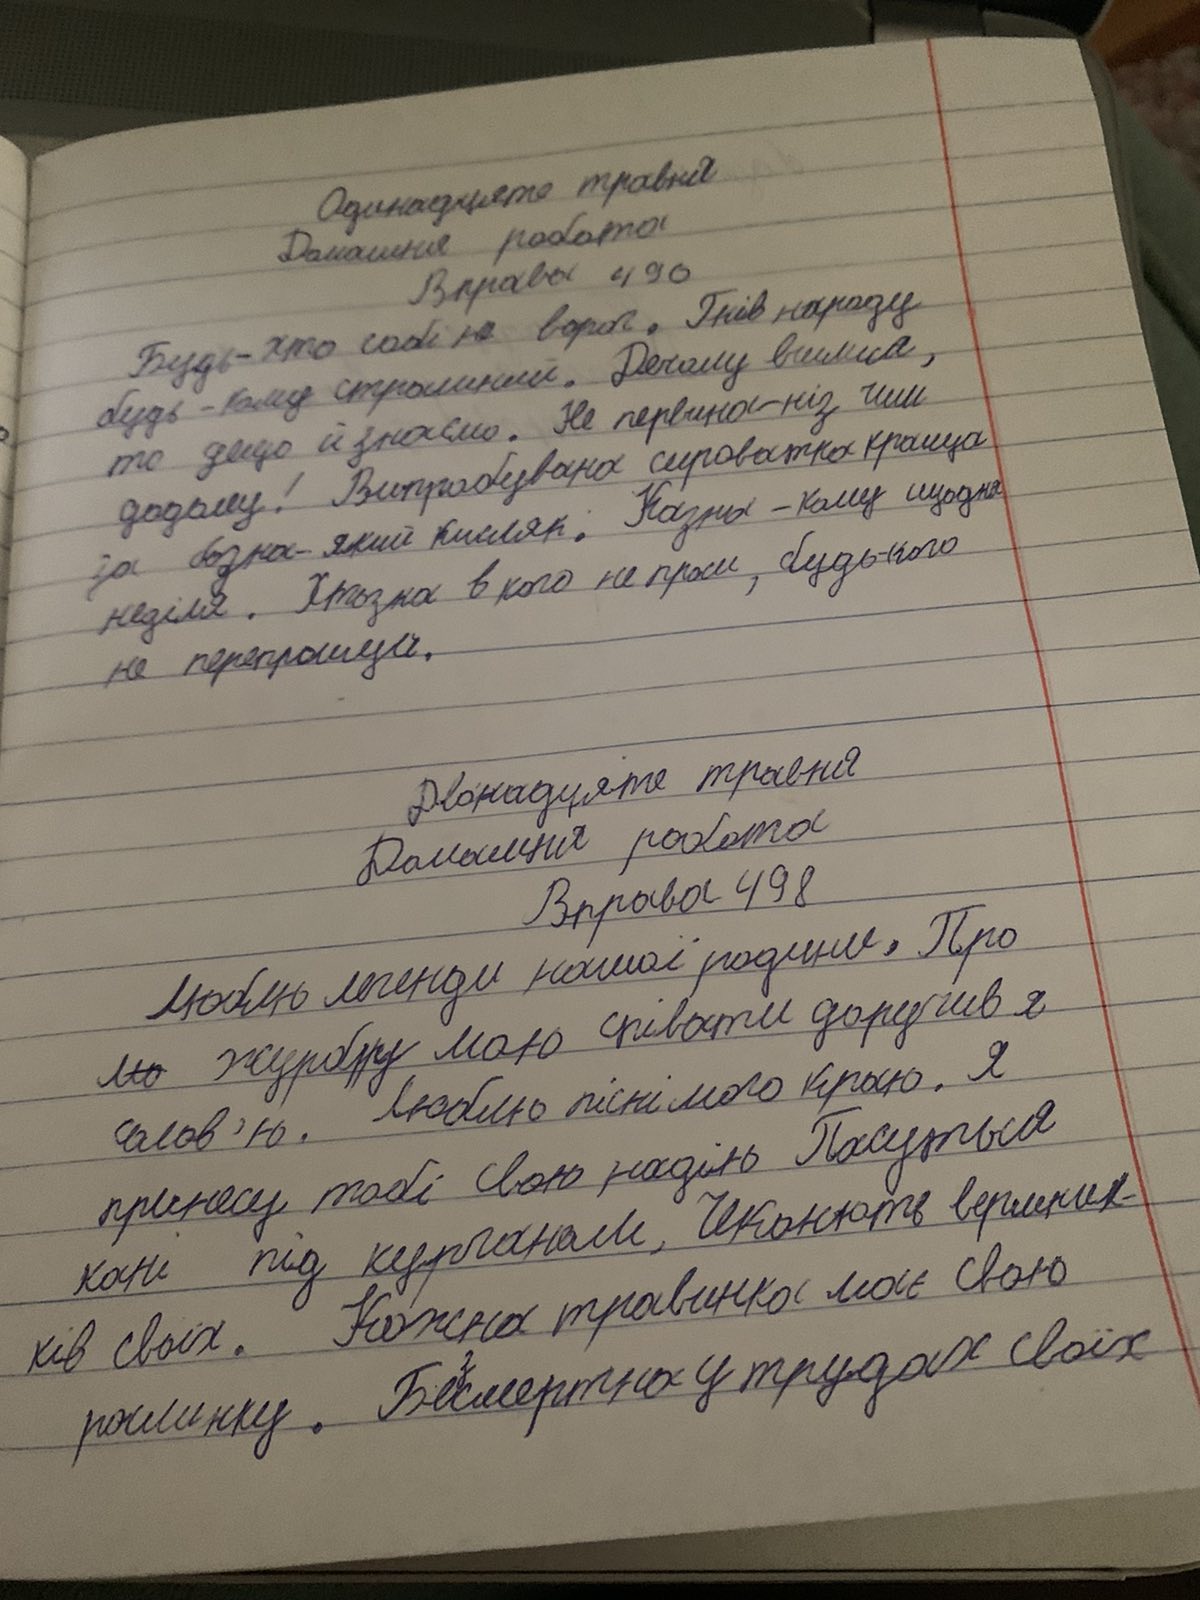 Одинадцяте травня
Домашня робота
Вправа 490
Будь-хто собі не ворог. Гнів народу
будь-кому страшний. Дечому вчимся,
то дещо й знаємо. Не первина-ніз чим
додому! Випробувана сироватка краща
за бозна-який кисляк. Казна-кому щодня
неділя. Хтозна в кого не проси, будь-кого
не перепрошуй.
Дванадцяте травня
Домашня робота
Вправа 498
Люблю легенди нашої родини. Про
журбу мою співати доручив я
солов'ю. Люблю пісні мого краю. Я
принесу тобі свою надію Пасуться
коні під курганом, Чекають вершник-
ків своїх. Кожна травинка має свою
рослинку. Безсмертна у трудах своїх